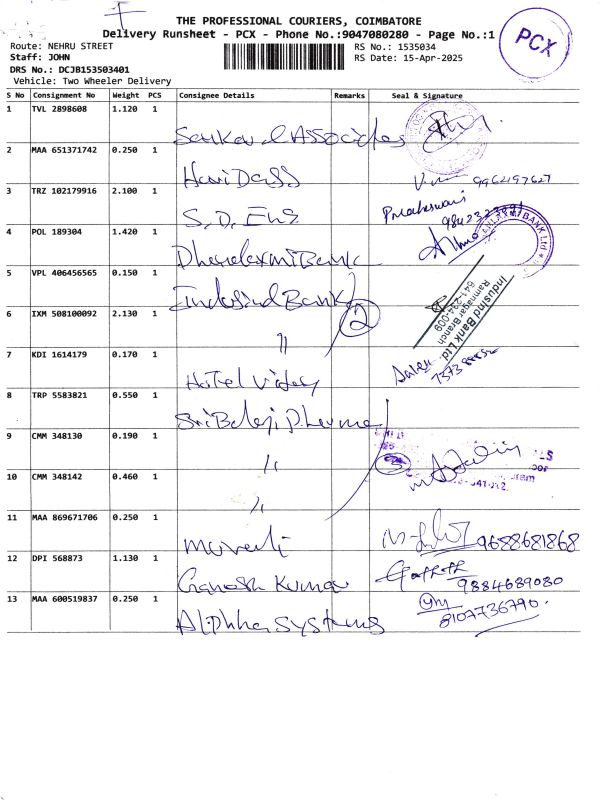 THE PROFESSIONAL COURIERS, COIMBATORE
Delivery Runsheet - PCX - Phone No.:9047080280 - Page No.:1
PCX
Route: NEHRU STREET
RS No.: 1535034
Staff: JOHN
RS Date: 15-Apr-2025
DRS No.: DCJB153503401
Vehicle: Two Wheeler Delivery
S No Consignment No Weight PCS Consignee Details Remarks Seal & Signature
1 TVL 2898608 1.120 1
Sankar & Associates
2 MAA 651371742 0.250 1
Hari Dass 9962197627
3 TRZ 102179916 2.100 1
S.D. Ens
4 POL 189304 1.420 1
Dhanalaxmi Bank
5 VPL 406456565 0.150 1
Indusind Bank
Indusind Bank Ltd.
Ramnagar Branch
641-009
6 IXM 508100092 2.130 1
" 2
7 KDI 1614179 0.170 1
Hotel
8 TRP 5583821 0.550 1
Sri Balaji Pharma
9 CMM 348130 0.190 1
"
10 CMM 348142 0.460 1
"
11 MAA 869671706 0.250 1
Maruti 9688681868
12 DPI 568873 1.130 1
Ganesh Kumar 9884689080
13 MAA 600519837 0.250 1
Aliphha Systems 8107736790.